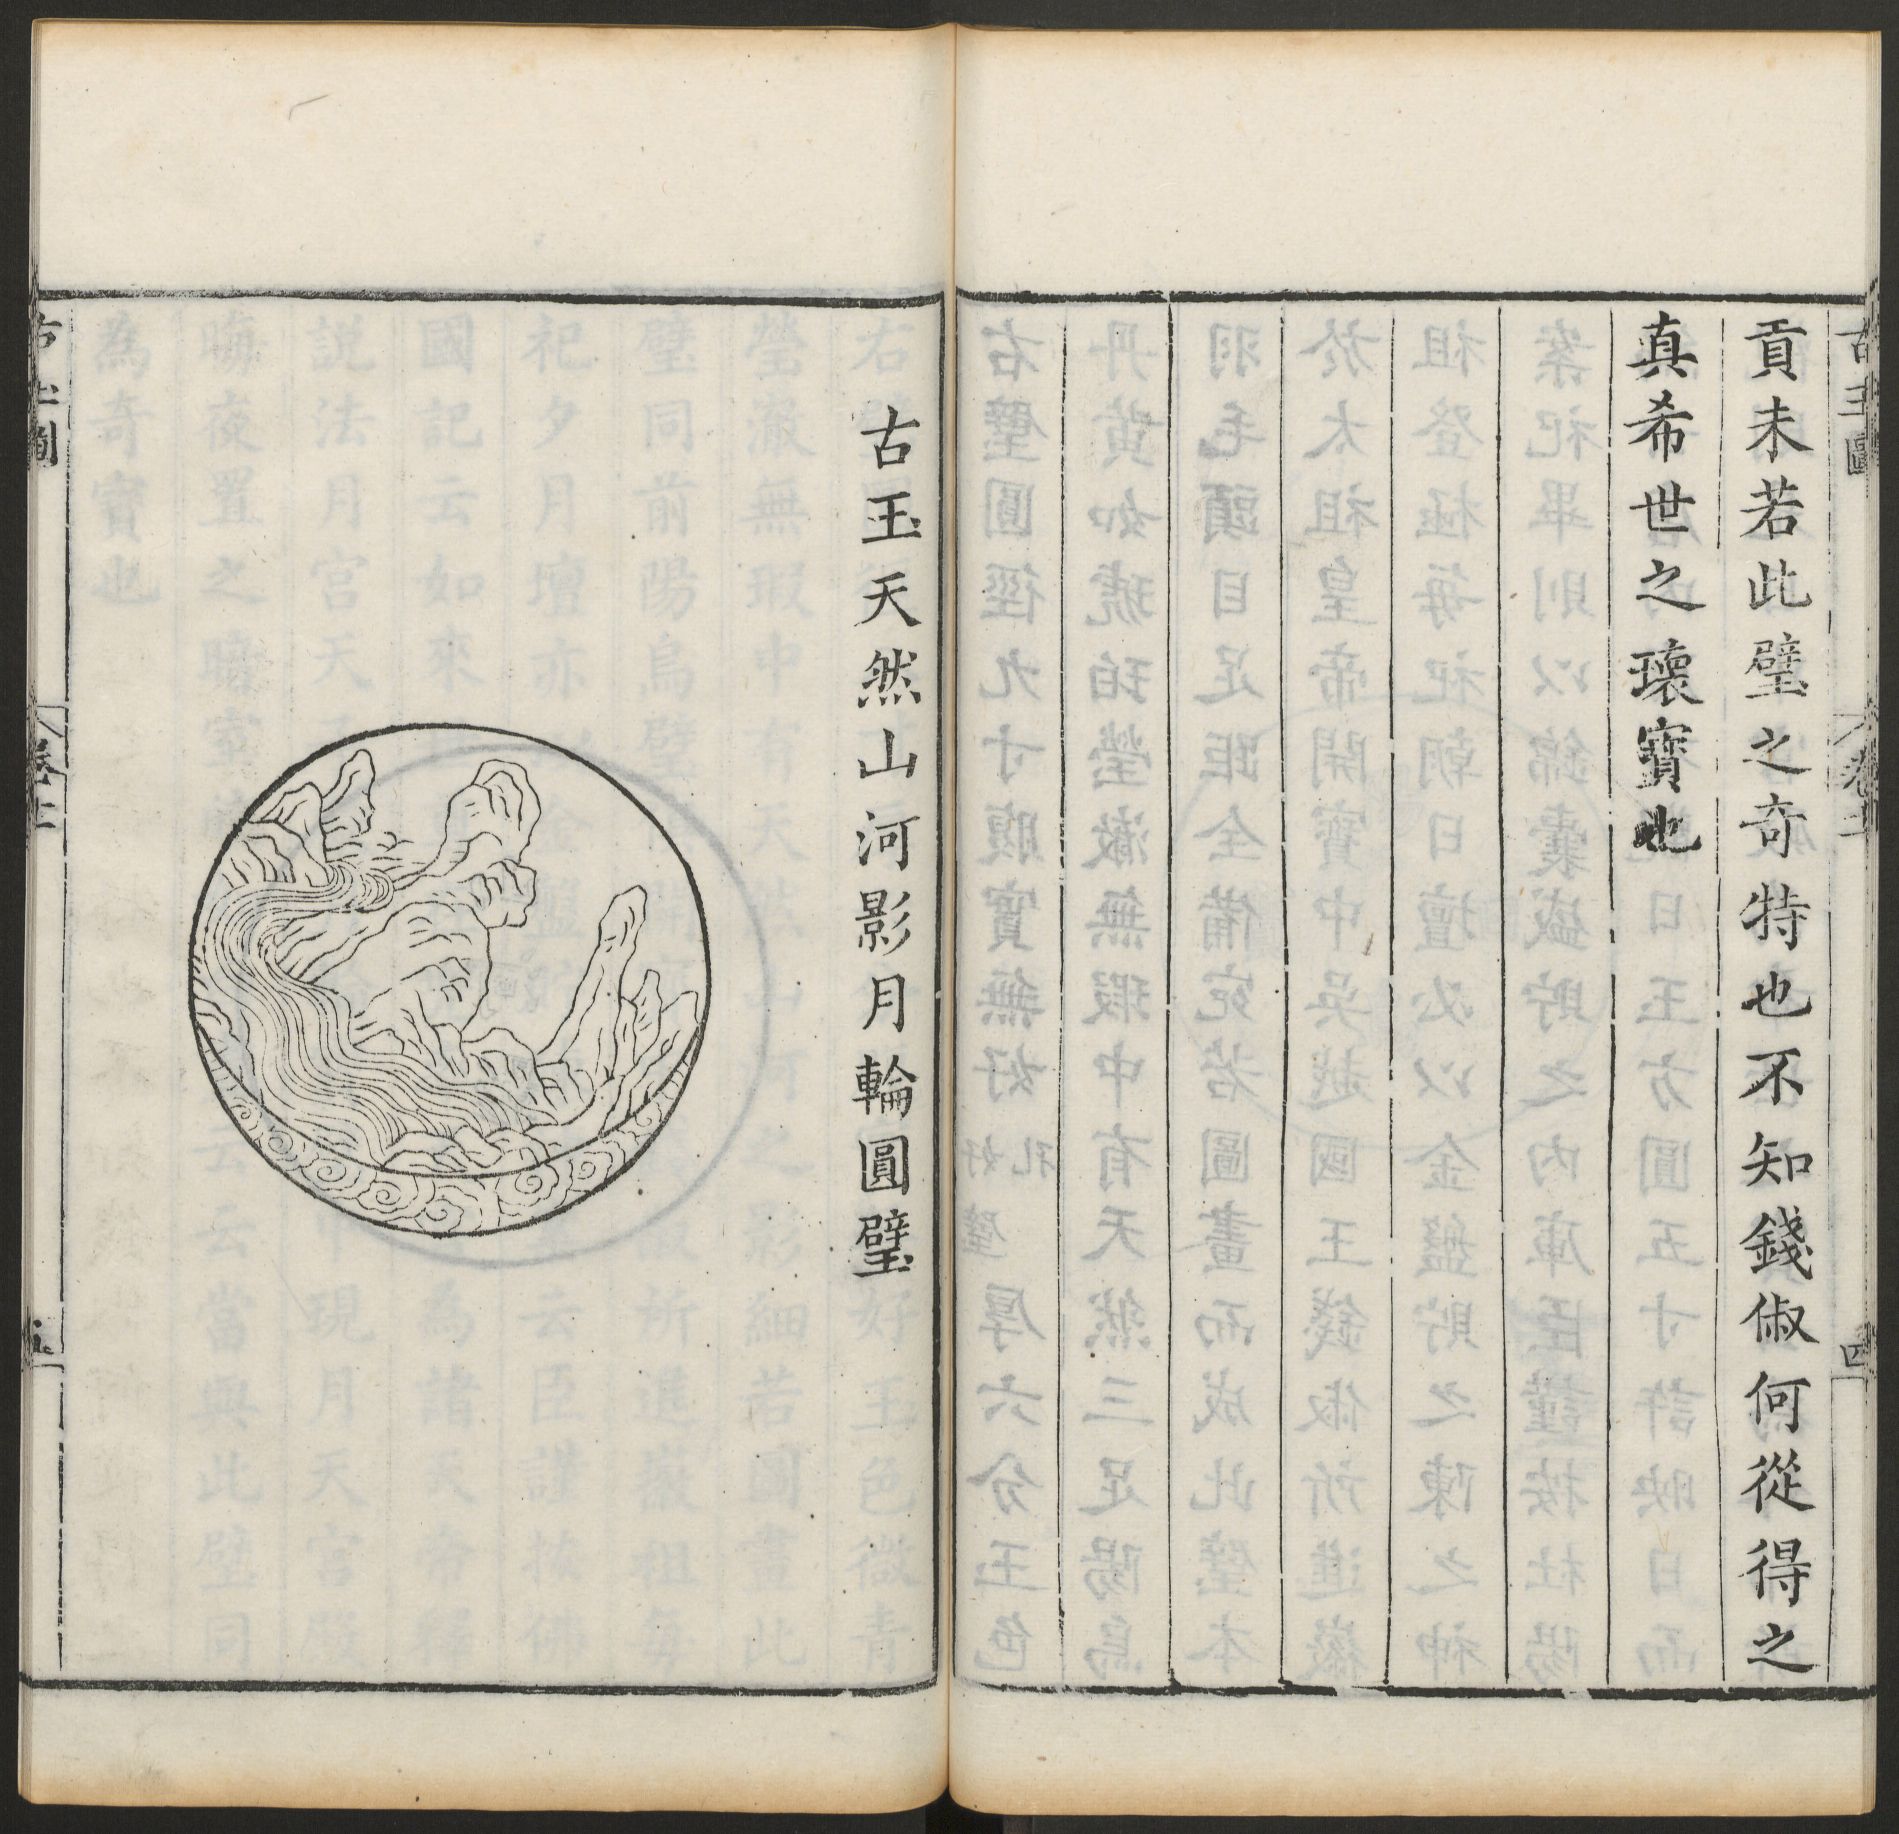 古玉圖
卷二
四
貢未若此璧之奇特也不知錢俶何從得之
真希世之瓌寶也
古玉天然山河影月輪圓璧
古玉圖
卷二
五